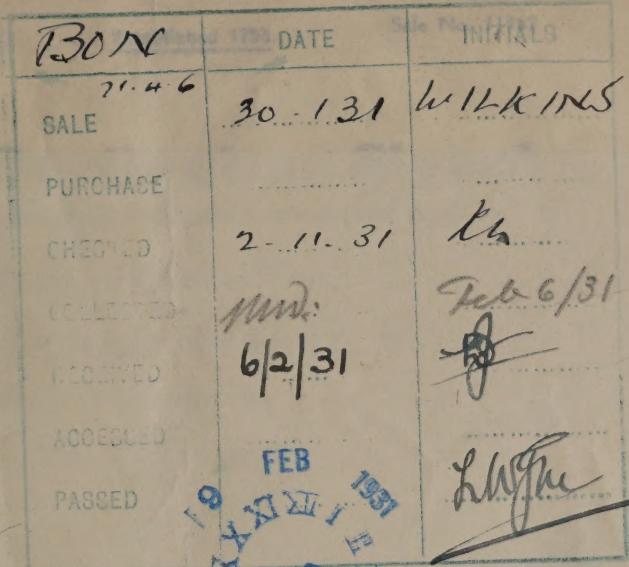 BON DATE INITIALS
71.4.6
SALE 30.1.31 WILKINS
PURCHASE
CHECKED 2-11-31
COLLECTED Feb 6/31
RECEIVED 6/2/31
ACCESSED
PASSED
9 FEB 1931